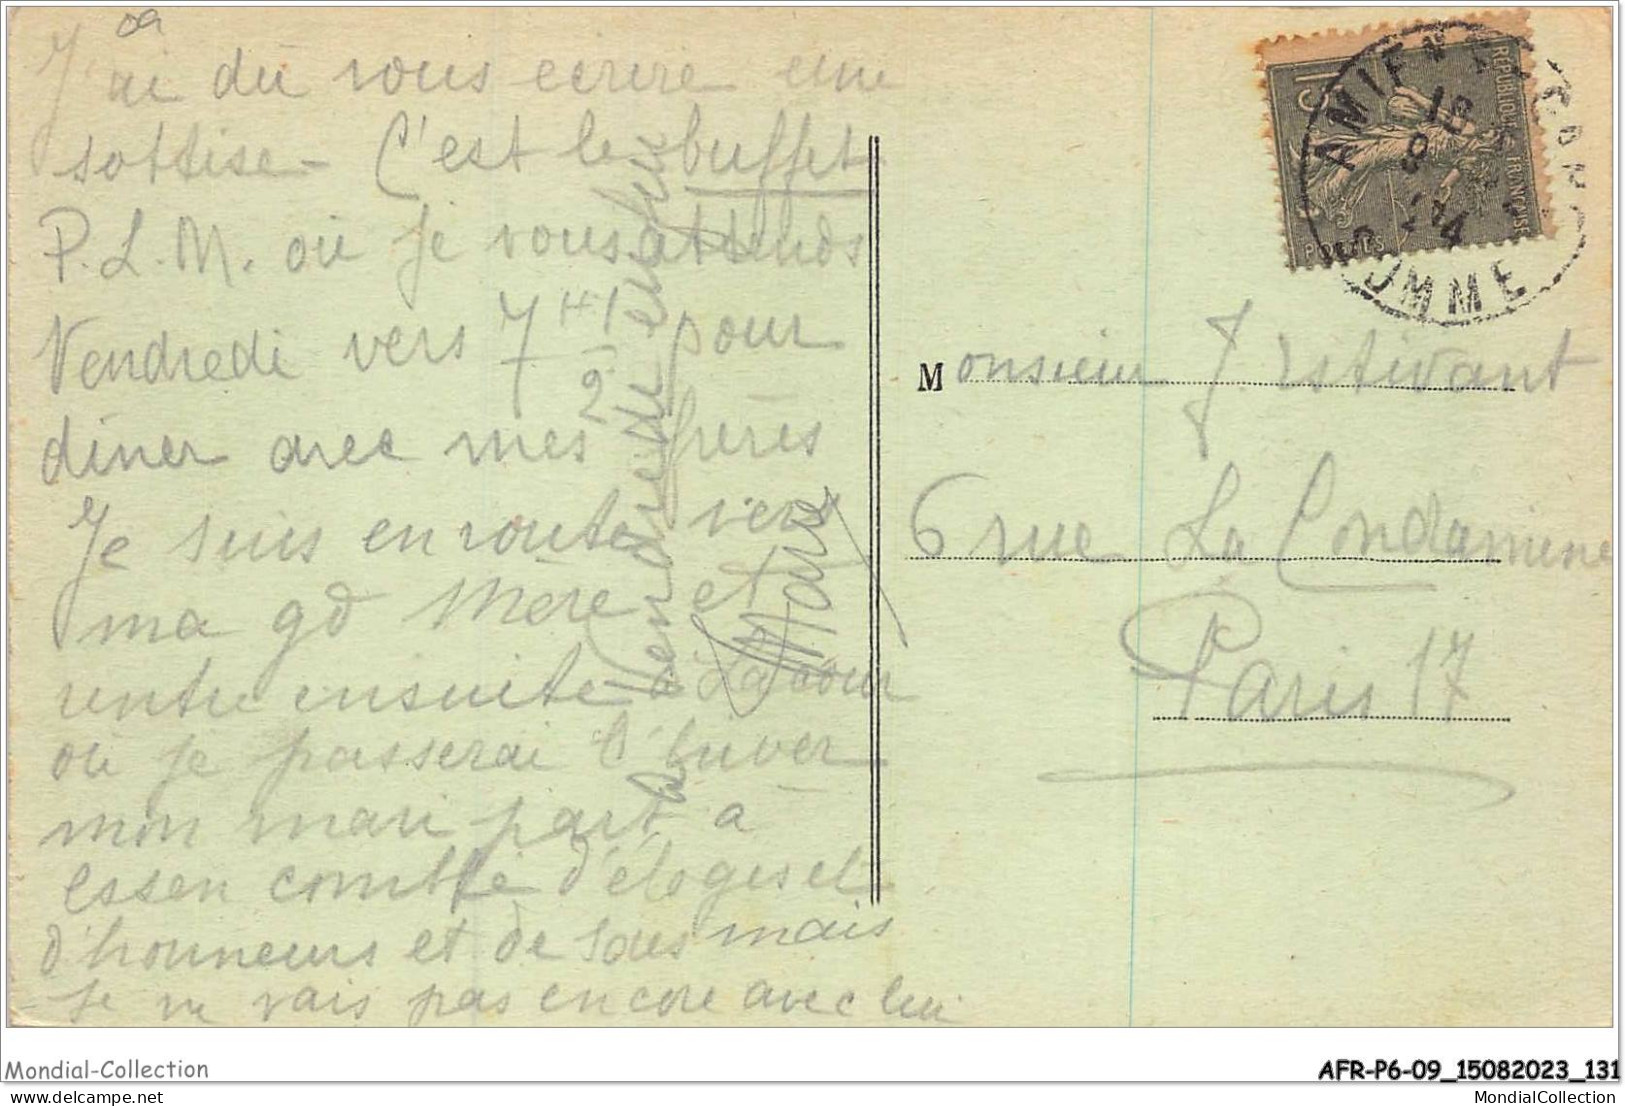 J'ai dû vous ecrire une
sottise - C'est le buffet
P.L.M. où je vous attends
Vendredi vers 7 H 1/2 pour
diner avec mes frères
Je suis en route vers
ma gd Mère et
rentre ensuite à La cour
où je passerai l'hiver
mon mari part à
essen comblé d'éloges et
d'honneurs et de sous mais
je ne vais pas encore avec lui
a Vendredi
Monsieur J. Estivant
6 rue La Condamine
Paris 17
AMIENS
SOMME
REPUBLIQUE FRANÇAISE
15
POSTES
Mondial-Collection
AFR-P6-09_15082023_131
delcampe.net
MondialCollection